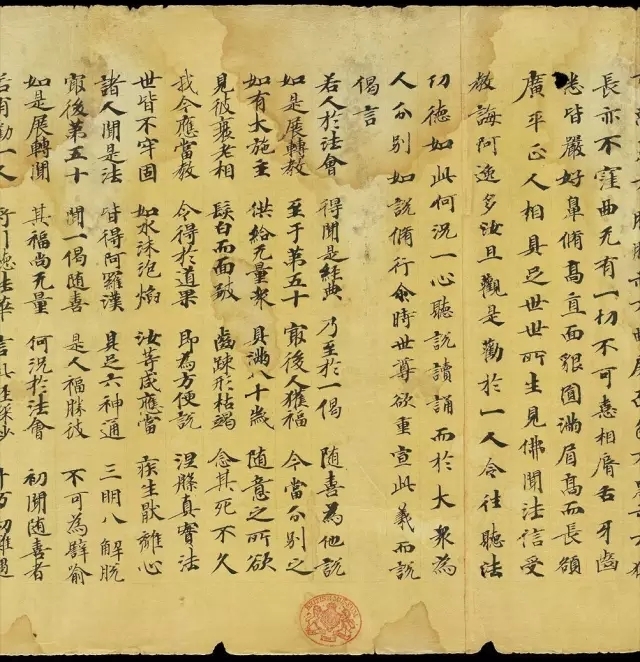 長亦不窪曲无有一切不可憙相脣舌牙齒
悉皆嚴好鼻脩高直面貌圓滿眉高而長額
廣平正人相具足世世所生見佛聞法信受
教誨阿逸多汝且觀是勸於一人令往聽法
功德如此何況一心聽說讀誦而於大衆為
人分別如說脩行尒時世尊欲重宣此義而說
偈言
若人於法會 得聞是經典 乃至於一偈 隨喜為他說
如是展轉教 至于第五十 冣後人獲福 今當分別之
如有大施主 供給无量衆 具滿八十歲 隨意之所欲
見彼衰老相 髮白而面皺 齒踈形枯竭 念其死不久
我今應當教 令得於道果 即為方便說 涅槃真實法
世皆不牢固 如水沫泡焰 汝等咸應當 疾生猒離心
諸人聞是法 皆得阿羅漢 具足六神通 三明八解脫
冣後第五十 聞一偈隨喜 是人福勝彼 不可為譬喻
如是展轉聞 其福尚无量 何況於法會 初聞隨喜者
若有勸一人